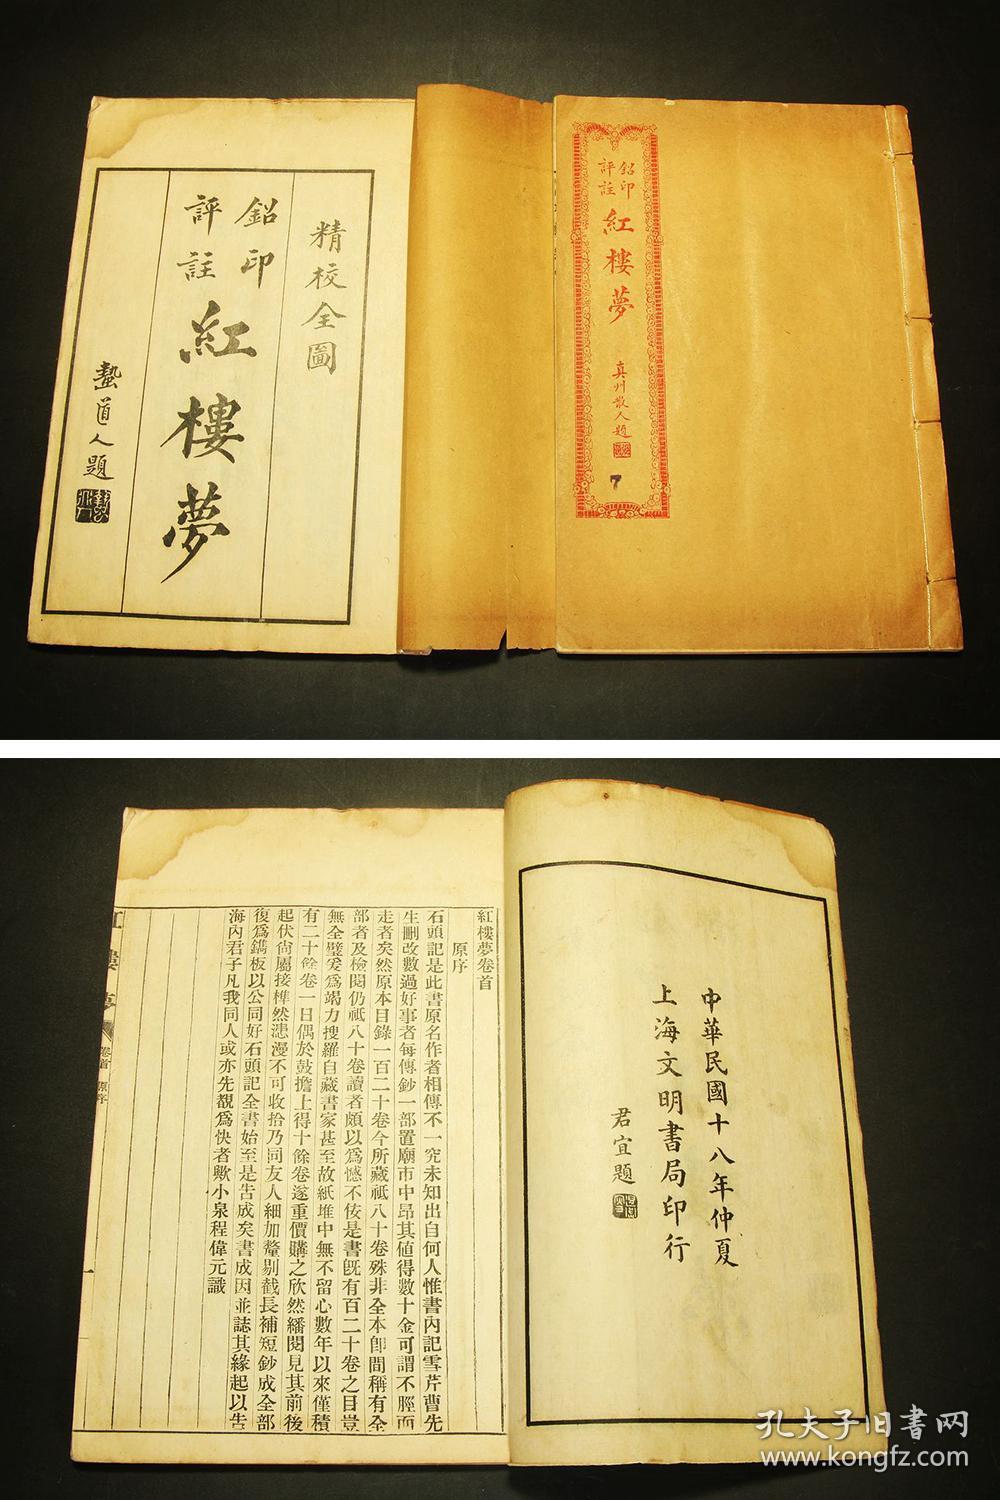 精校全圖
鉛印
評註
紅樓夢
蟄道人題
鉛印
評註
紅樓夢
真州散人題
7
中華民國十八年仲夏
上海文明書局印行
君宜題
紅樓夢卷首
原序
石頭記是此書原名作者相傳不一究未知出自何人惟書內記雪芹曹先
生刪改數過好事者每傳鈔一部置廟市中昂其値得數十金可謂不脛而
走者矣然原本目錄一百二十卷今所藏祗八十卷殊非全本卽間稱有全
部者及檢閱仍祗八十卷讀者頗以爲憾不佞是書旣有百二十卷之目豈
無全璧爰爲竭力搜羅自藏書家甚至故紙堆中無不留心數年以來僅積
有二十餘卷一日偶於鼓擔上得十餘卷遂重價購之欣然繙閱見其前後
起伏尙屬接榫然漶漫不可收拾乃同友人細加釐剔截長補短鈔成全部
復爲鐫板以公同好石頭記全書始至是告成矣書成因並誌其緣起以告
海內君子凡我同人或亦先覩爲快者歟小泉程偉元識
紅樓夢
卷首
原序
一
孔夫子旧書网
www.kongfz.com